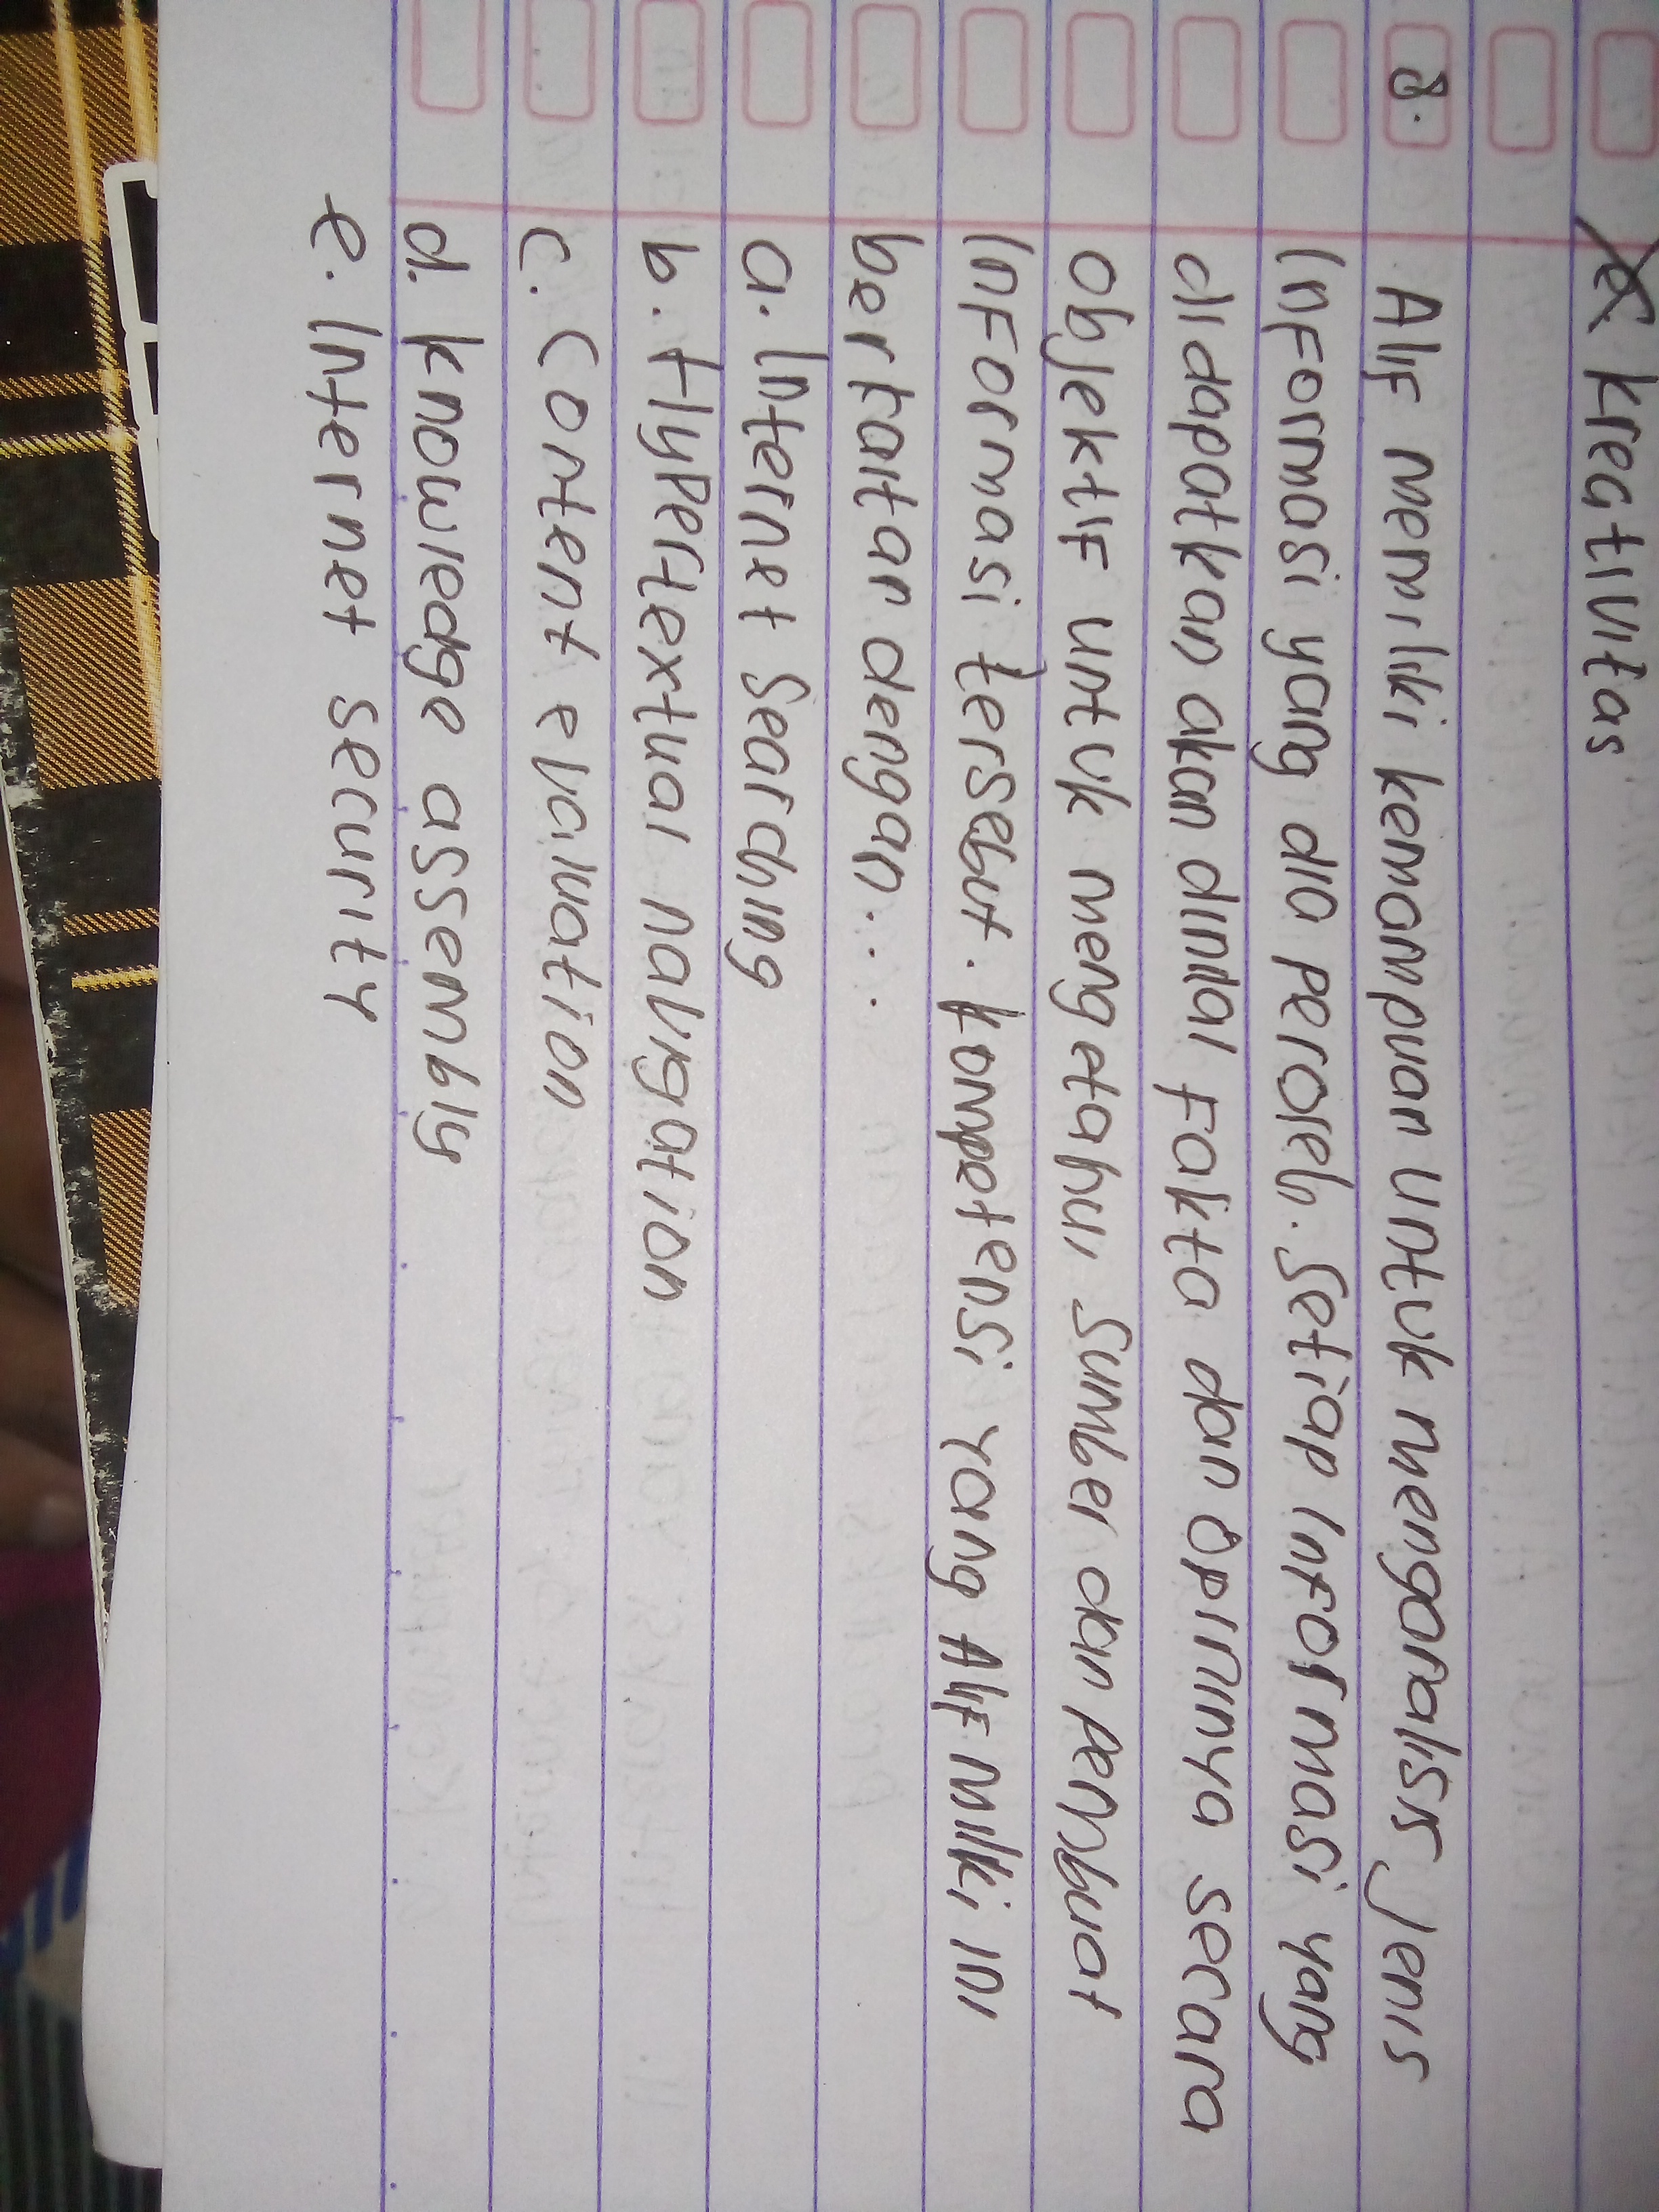 e. Kreativitas
8. Alif memiliki kemampuan untuk menganalisis jenis
informasi yang dia peroleh. Setiap informasi yang
didapatkan akan dinilai fakta dan opininya secara
objektif untuk mengetahui sumber dan pembuat
informasi tersebut. Kompetensi yang Alif miliki ini
bertaitan dengan...
a. Internet Searching
b. Hypertextual navigation
c. Content evaluation
d. knowledge assembly
e. Internet security